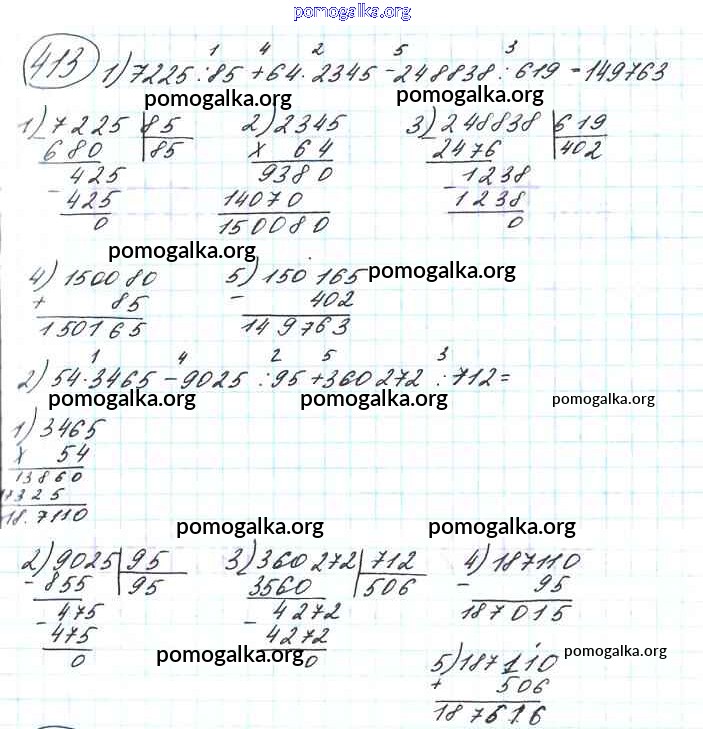 pomogalka.org
413 1) 7225 : 85 + 64 · 2345 - 248838 : 619 = 149763
1 4 2 5 3
pomogalka.org pomogalka.org
1) 7225 85 2) 2345 3) 248838 619
- 680 85 x 64 - 2476 402
425 9380 1238
- 425 14070 - 1238
0 150080 0
pomogalka.org
4) 150080 5) 150165 pomogalka.org
+ 85 - 402
150165 149763
1 4 2 5 3
2) 54 · 3465 - 9025 : 95 + 360272 : 712 =
pomogalka.org pomogalka.org pomogalka.org
1) 3465
x 54
13860
17325
18.7110
pomogalka.org pomogalka.org
2) 9025 95 3) 360272 712 4) 187110
- 855 95 3560 506 - 95
475 4272 187015
- 475 - 4272
0 pomogalka.org 0 pomogalka.org
5) 187110
+ 506
187616